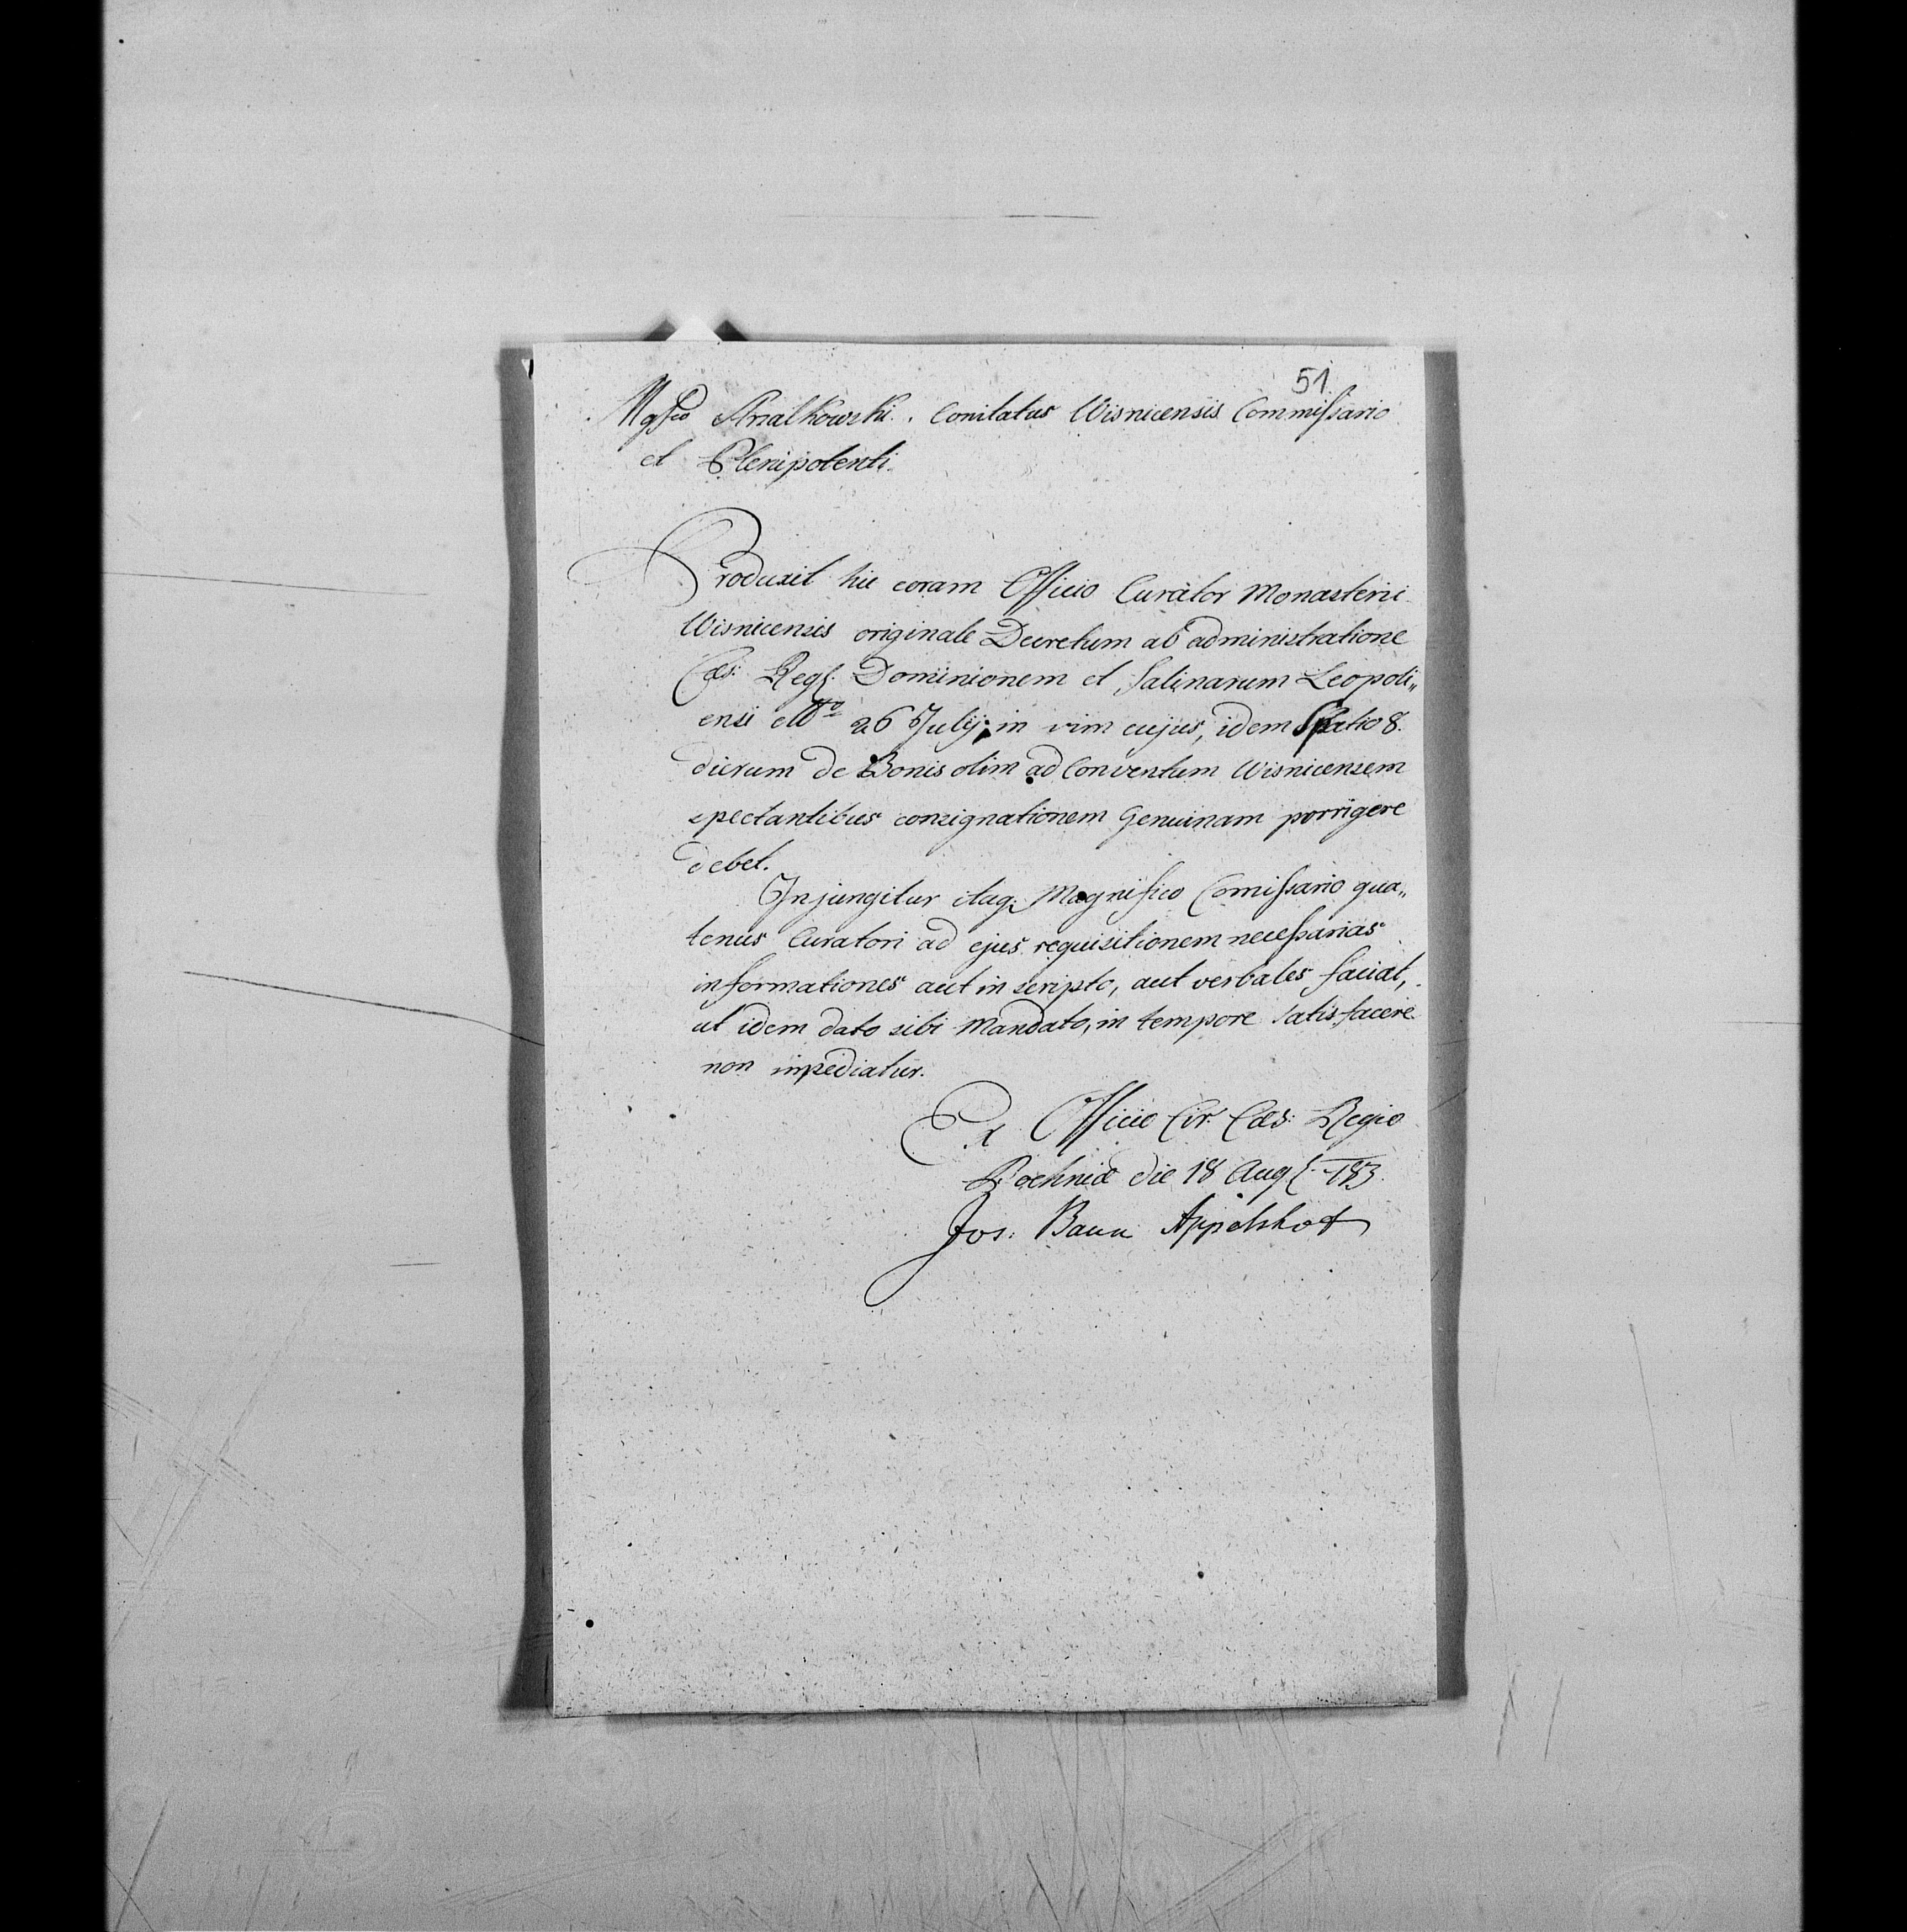 51.
Mgfco Arzalkowski. Comitatus Wisnicensis Commissario
et Plenipotenti.
Produxit hic coram Officio Curator Monasterii
Wisnicensis originale Decretum ab administratione
Cæs: Reg: Dominionem et Salinarum Leopoli„
ensi dtto 26 Julij in vim cujus, idem Spatio 8.
dierum de Bonis olim ad Conventum Wisnicensem
spectantibus consignationem Genuinam porrigere
debet.
Injungitur itaq; Magnifico Comissario qua„
tenus Curatori ad ejus requisitionem necessarias
informationes aut in scripto, aut verbales faciat,
ut idem dato sibi Mandato, in tempore satisfacere
non inpediatur.
Ex Officio Cir: Cæs: Regio
Bochniæ die 18 Aug: 783.
Jos: Baum Appelshof